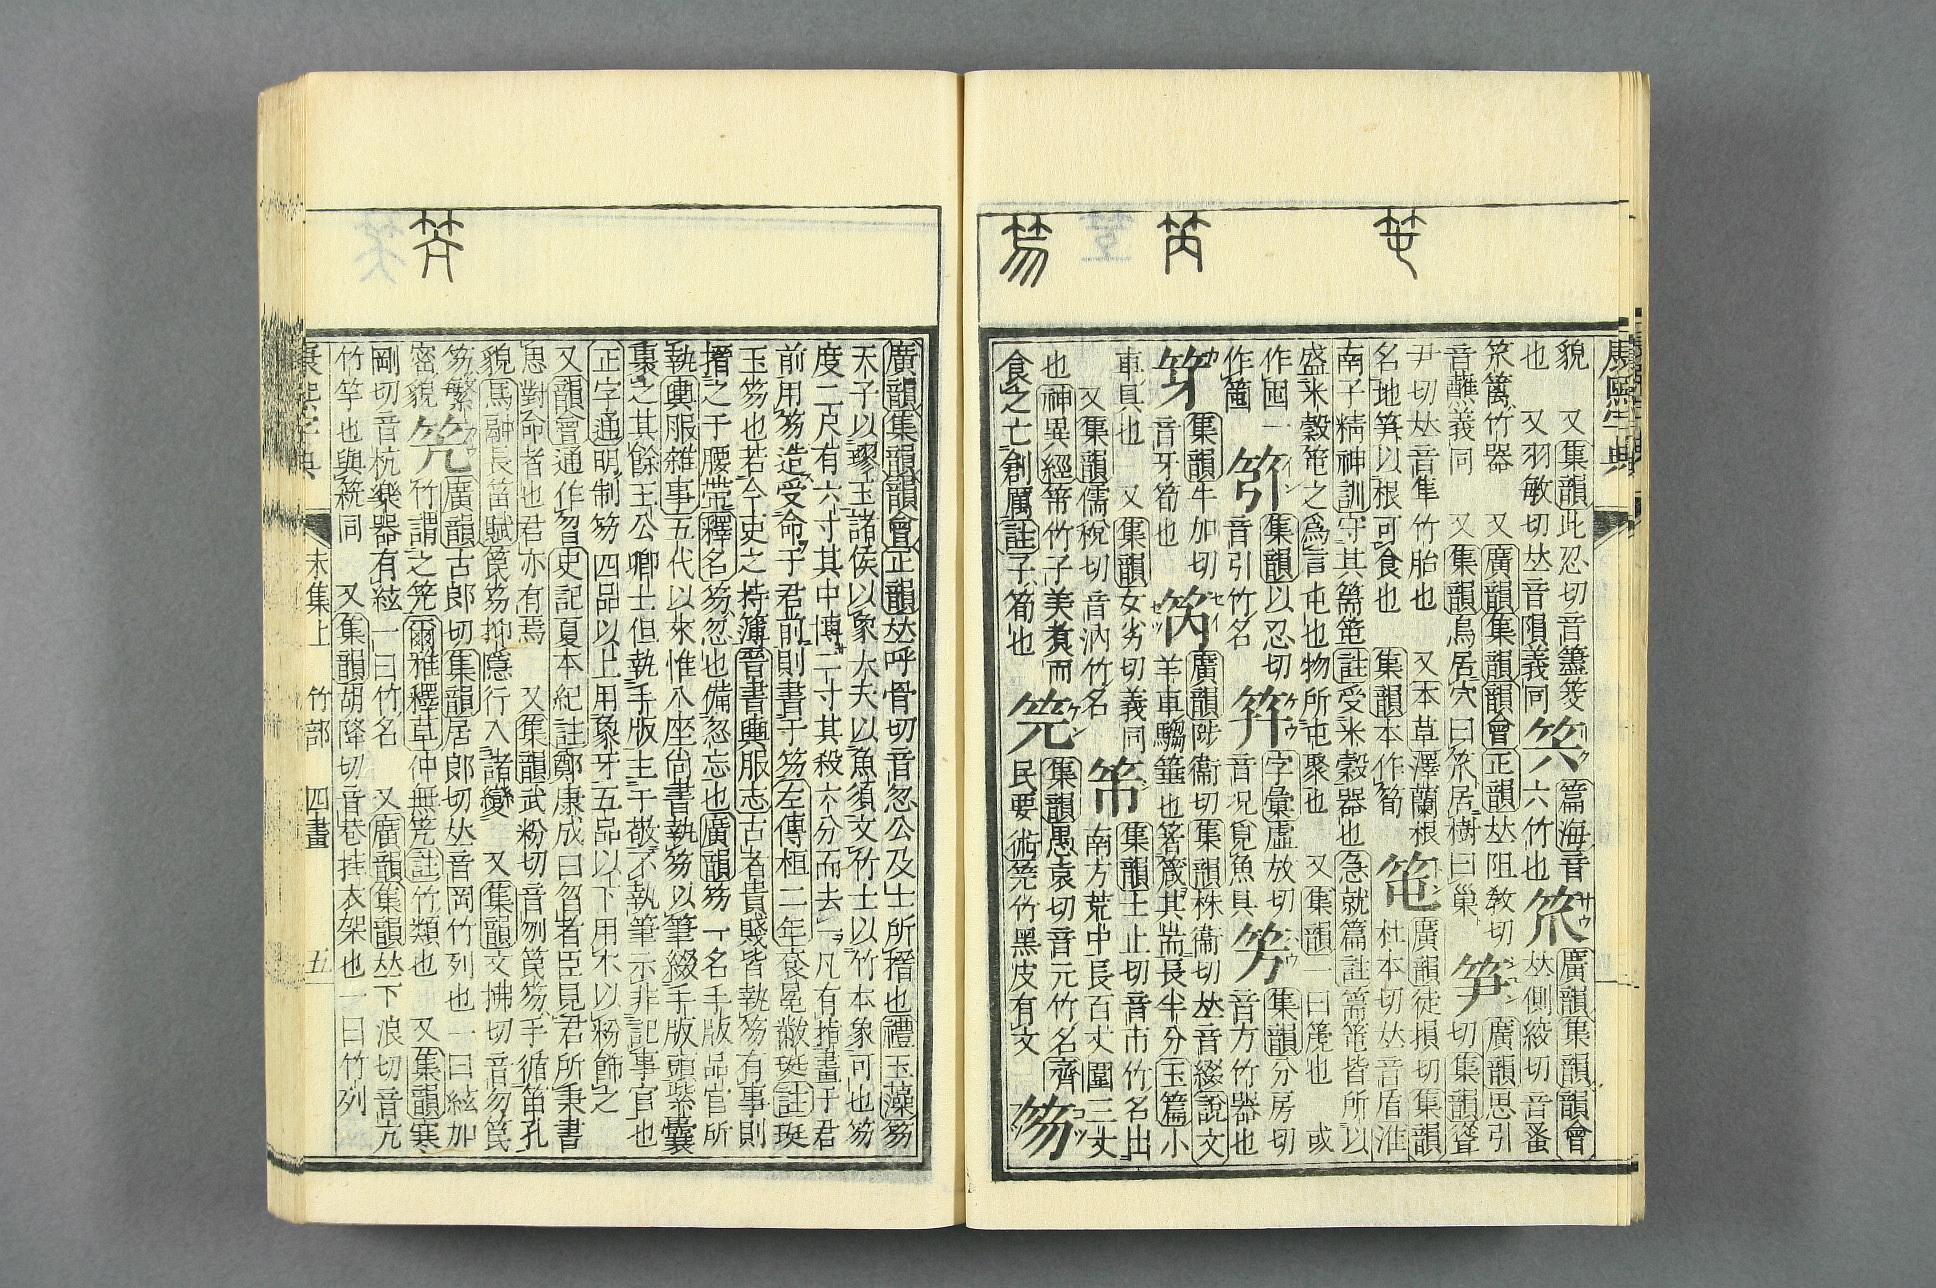 康熙字典
貌 又集韻此忍切音 篇海音 笊 廣韻集韻韻會
也 又羽敏切𠀤音隕義同 六竹也 𠀤側絞切音蚤
笊籬竹器 又廣韻集韻韻會正韻𠀤阻敎切 笋 廣韻思引
音醮義同 又集韻鳥居穴曰笊居樹曰巢 切集韻聳
尹切𠀤音隼竹胎也 又本草澤蘭根 𥫱 廣韻徒損切集韻
名地笋以根可食也 集韻本作筍 杜本切𠀤音盾淮
南子精神訓守其篅𥫱註受米穀器也急就篇註篅𥫱皆所以
盛米穀𥫱之爲言屯也物所屯聚也 又集韻一曰篾也 或
作囤 集韻以忍切 字彙虛放切 集韻分房切
作 音引竹名 音况覓魚具 音方竹器也
笌 集韻牛加切 笍 廣韻陟衞切集韻株衞切𠀤音綴說文
音牙筍也 羊車騶箠也箸箴其耑長半分玉篇小
車具也 又集韻女劣切義同 集韻士止切音市竹名出
又集韻儒稅切音汭竹名 南方荒中長百丈圍三丈
也神異經 竹子美煮而 笎 集韻愚袁切音元竹名齊
食之亡創厲註子筍也 民要術笎竹黑皮有文 笏
廣韻集韻韻會正韻𠀤呼骨切音忽公及士所搢也禮玉藻笏
天子以璆玉諸侯以象大夫以魚須文竹士以竹本象可也笏
度二尺有六寸其中博二寸其殺六分而去一凡有指畫于君
前用笏造受命于君前則書于笏左傳桓二年袞冕黻珽註珽
玉笏也若今吏之持簿晉書輿服志古者貴賤皆執笏有事則
搢之于腰帶釋名笏忽也備忽忘也廣韻笏一名手版品官所
執輿服雜事五代以來惟八座尚書執笏以筆綴手版頭紫囊
裹之其餘王公卿士但執手版主于敬不執筆示非記事官也
正字通明制笏四品以上用象牙五品以下用木以粉飾之
又韻會通作曶史記夏本紀註鄭康成曰曶者臣見君所秉書
思對命者也君亦有焉 又集韻武粉切音刎笢笏手循笛孔
貌馬融長笛賦笢笏抑隱行入諸變 又集韻文拂切音勿笢
笏繁 笐 廣韻古郎切集韻居郎切𠀤音岡竹列也一曰絃加
密貌 竹謂之笐爾雅釋草仲無笐註竹類也 又集韻寒
剛切音杭樂器有絃一曰竹名 又廣韻集韻𠀤下浪切音亢
竹竿也與筦同 又集韻胡降切音巷挂衣架也一曰竹列
康熙字典 未集上 竹部 四畫 五